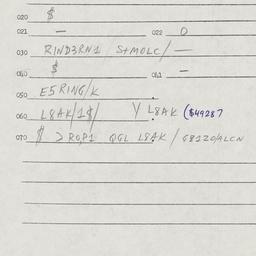 020 $
021 — 022 0
030 RIND3RN1 S+MOLC/ —
040 $ 041 —
050 E5RING/K
060 L8AK/1$/ Y L8AK ($49287
070 $ >ROP1 QGL L8AK / G8120/ALCN